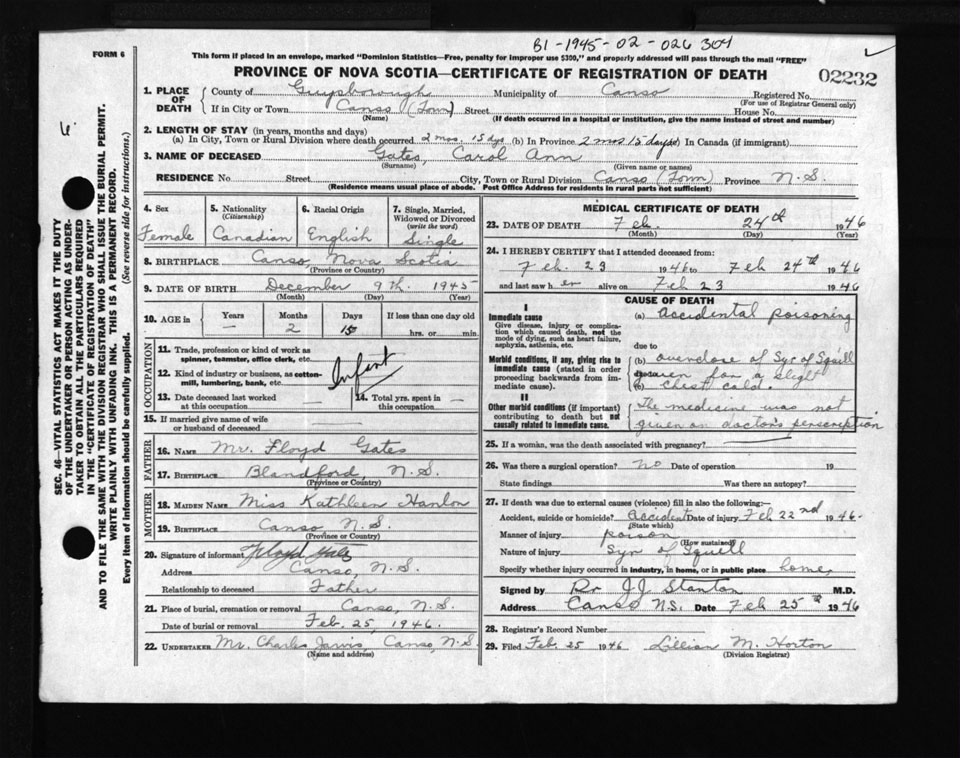 B1-1945-02-026304
FORM 6
This form if placed in an envelope, marked "Dominion Statistics—Free, penalty for improper use $300," and properly addressed will pass through the mail "FREE"
PROVINCE OF NOVA SCOTIA—CERTIFICATE OF REGISTRATION OF DEATH 02232
1. PLACE OF DEATH
County of Guysborough Municipality of Canso Registered No.
(For use of Registrar General only)
If in City or Town Canso (Town) Street House No.
(Name) (If death occurred in a hospital or institution, give the name instead of street and number)
2. LENGTH OF STAY (in years, months and days)
(a) In City, Town or Rural Division where death occurred 2 mos. 15 dys. (b) In Province 2 mos 15 days (c) In Canada (if immigrant)
3. NAME OF DECEASED Gates, Carol Ann
(Surname) (Given name or names)
RESIDENCE No. Street City, Town or Rural Division Canso (Town) Province N.S.
(Residence means usual place of abode. Post Office Address for residents in rural parts not sufficient)
4. Sex Female
5. Nationality (Citizenship) Canadian
6. Racial Origin English
7. Single, Married, Widowed or Divorced (write the word) Single
8. BIRTHPLACE Canso, Nova Scotia
(Province or Country)
9. DATE OF BIRTH December 9th. 1945
(Month) (Day) (Year)
10. AGE in Years Months Days If less than one day old
— 2 15 hrs. or min.
OCCUPATION
11. Trade, profession or kind of work as spinner, teamster, office clerk, etc.
12. Kind of industry or business, as cotton-mill, lumbering, bank, etc.
Infant
13. Date deceased last worked at this occupation
14. Total yrs. spent in this occupation
15. If married give name of wife or husband of deceased
FATHER
16. NAME Mr. Floyd Gates
17. BIRTHPLACE Blandford, N.S.
(Province or Country)
MOTHER
18. MAIDEN NAME Miss Kathleen Hanlon
19. BIRTHPLACE Canso N.S.
(Province or Country)
20. Signature of informant Floyd Gates
Address Canso, N.S.
Relationship to deceased Father
21. Place of burial, cremation or removal Canso, N.S.
Date of burial or removal Feb. 25, 1946.
22. UNDERTAKER Mr. Charles Jarvis Canso, N.S.
(Name and address)
MEDICAL CERTIFICATE OF DEATH
23. DATE OF DEATH Feb. 24th 1946
(Month) (Day) (Year)
24. I HEREBY CERTIFY that I attended deceased from:
Feb. 23 1946 to Feb 24th 1946
and last saw her alive on Feb 23 1946
CAUSE OF DEATH
I
Immediate cause
Give disease, injury or complication which caused death, not the mode of dying, such as heart failure, asphyxia, asthenia, etc.
(a) Accidental poisoning
due to
Morbid conditions, if any, giving rise to immediate cause (stated in order proceeding backwards from immediate cause).
(b) overdose of Syr of Squill
given for a slight
(c) chest cold.
II
Other morbid conditions (if important) contributing to death but not causally related to immediate cause.
The medicine was not
given on doctor's perscreption
25. If a woman, was the death associated with pregnancy?
26. Was there a surgical operation? no Date of operation 19
State findings Was there an autopsy?
27. If death was due to external causes (violence) fill in also the following:—
Accident, suicide or homicide? Accident Date of injury Feb 22nd 1946
(State which)
Manner of injury poison
(How sustained)
Nature of injury Syr of Squill
Specify whether injury occurred in industry, in home, or in public place home
Signed by Dr J.J. Stanton M.D.
Address Canso N.S. Date Feb 25th 1946
28. Registrar's Record Number
29. Filed Feb. 25 1946 Lillian M. Horton
(Division Registrar)
SEC. 46—VITAL STATISTICS ACT MAKES IT THE DUTY
OF THE UNDERTAKER OR PERSON ACTING AS UNDER-
TAKER TO OBTAIN ALL THE PARTICULARS REQUIRED
IN THE "CERTIFICATE OF REGISTRATION OF DEATH"
AND TO FILE THE SAME WITH THE DIVISION REGISTRAR WHO SHALL ISSUE THE BURIAL PERMIT.
WRITE PLAINLY WITH UNFADING INK. THIS IS A PERMANENT RECORD.
Every item of Information should be carefully supplied. (See reverse side for instructions.)